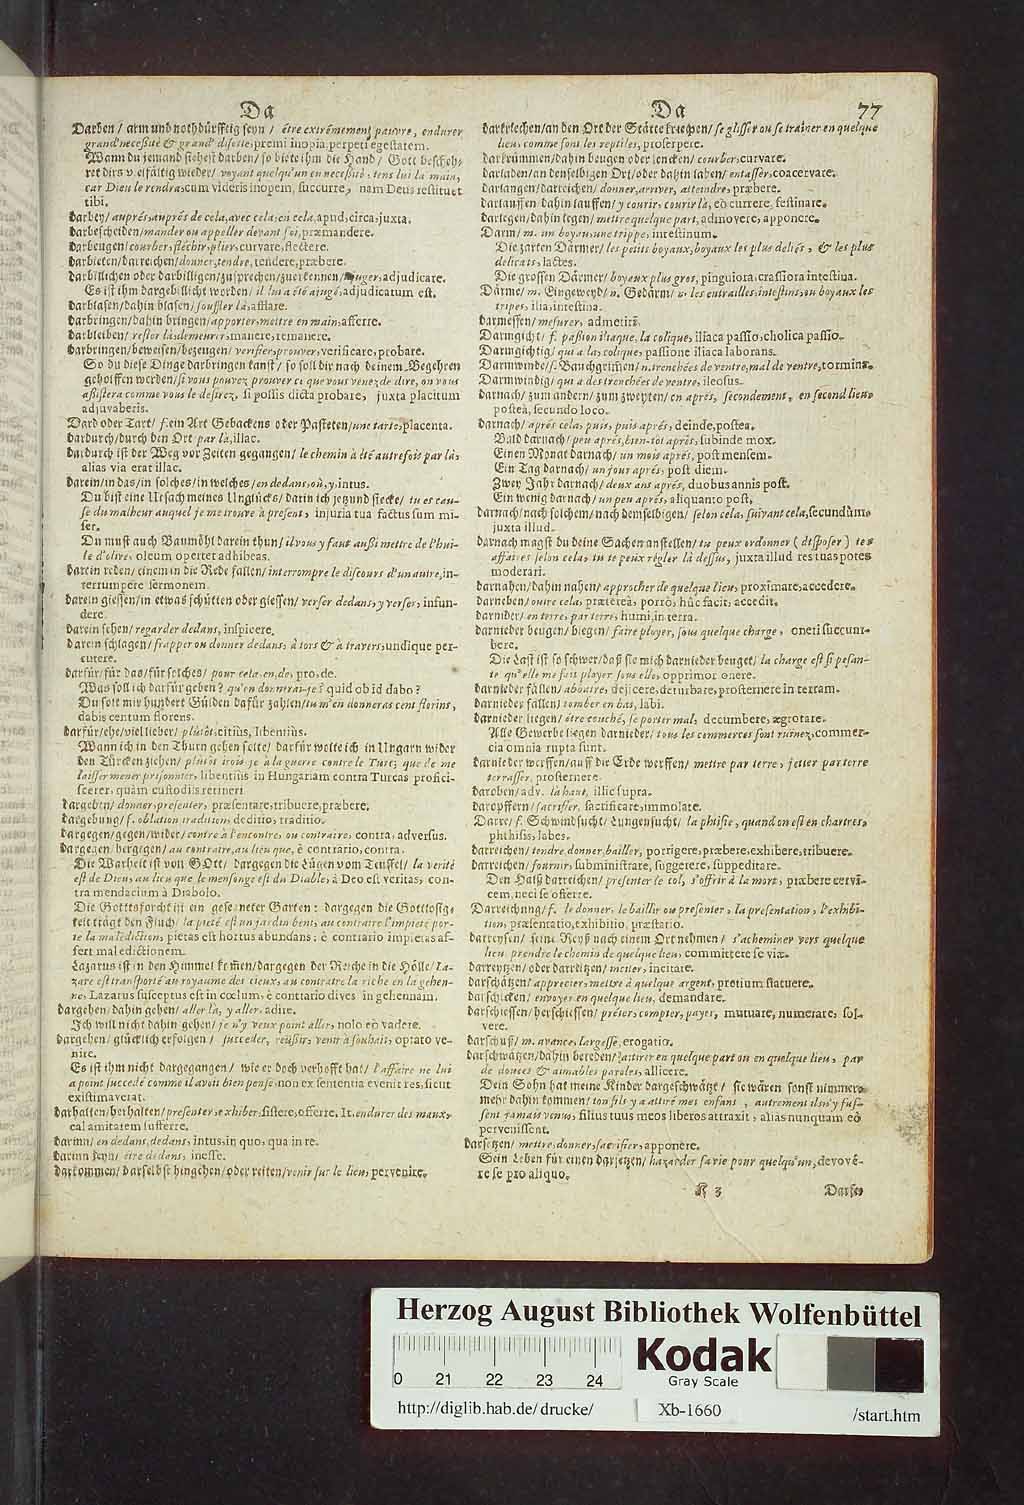 Da
Darben / arm und nothdürfftig seyn / être extrêmement pauvre, endurer
grand' necessité & grand' disette, premi inopia, perpeti egestatem.
Wann du jemand siehest darben / so biete ihm die Hand / Gott bescheh-
ret dirs vielfältig wieder / voyant quelqu'un en necessité, tens lui la main,
car Dieu le rendra, cum videris inopem, succurre, nam Deus restituet
tibi.
darbey / auprés, auprés de cela, avec cela, en cela, apud, circa, juxta.
darbescheiden / mander ou appeller devant soi, præmandere.
darbeugen / courber, fléchir, plier, curvare, flectere.
darbieten / darreichen / donner, tendre, tendere, præbere.
darbillichen oder darbilligen / zusprechen / zuerkennen / juger, adjudicare.
Es ist ihm dargebillicht worden / il lui a été ajugé, adjudicatum est.
darblasen / dahin blasen / souffler là, afflare.
darbringen / dahin bringen / apporter, mettre en main, afferre.
darbleiben / rester là, demeurer, manere, remanere.
darbringen / beweisen / bezeugen / verifier, prouver, verificare, probare.
So du diese Dinge darbringen kanst / so soll dir nach deinem Begehren
geholffen werden / si vous pouvez prouver ce que vous venez de dire, on vous
assistera comme vous le desirez, si possis dicta probare, juxta placitum
adjuvaberis.
Dard oder Tart / f. ein Art Gebackens oder Pasteten / une tarte, placenta.
dardurch / durch den Ort par là, illac.
dardurch ist der Weg vor Zeiten gegangen / le chemin à été autrefois par là,
alias via erat illac.
darein / in das / in solches / in welches / en dedans, où, y, intus.
Du bist eine Ursach meines Unglücks / darin ich jetzund stecke / tu es cau-
se du malheur auquel je me trouve à present, injuria tua factus sum mi-
ser.
Du must auch Baumöhl darein thun / il vous y faut aussi mettre de l'hui-
le d'olive, oleum oportet adhibeas.
darein reden / einem in die Rede fallen / interrompre le discours d'un autre, in-
terrumpere sermonem.
darein giessen / in etwas schütten oder giessen / verser dedans, y verser, infun-
dere.
darein sehen / regarder dedans, inspicere.
darein schlagen / frapper ou donner dedans, à tors & à travers, undique per-
cutere.
darfür / für das / für solches / pour cela, en, de, pro, de.
Was soll ich darfür geben? qu'en donnerai-je? quid ob id dabo?
Du solt mir hundert Gülden dafür zahlen / tu m'en donneras cent florins,
dabis centum florens.
darfür / ehe / viel lieber / plûtôt, citius, libentius.
Wann ich in den Thurn gehen solte / darfür wolte ich in Ungarn wider
den Türcken ziehen / plûtôt irois-je à la guerre contre le Turc, que de me
laisser mener prisonnier, libentius in Hungariam contra Turcas profici-
scerer, quàm custodiis retineri.
dargeben / donner, presenter, præsentare, tribuere, præbere.
dargebung / f. oblation tradition, deditio, traditio.
dargegen / gegen / wider / contre à l'encontre, ou contraire, contra, adversus.
dargegen hergegen / au contraire, au lieu que, è contrario, contra.
Die Warheit ist von GOtt / dargegen die Lügen vom Teuffel / la verité
est de Dieu, au lieu que le mensonge est du Diable, à Deo est veritas, con-
tra mendacium à Diabolo.
Die Gottsforcht ist ein gesegneter Garten: dargegen die Gottlosig-
keit trägt den Fluch / la pieté est un jardin beni, au contraire l'impieté por-
te la malediction, pietas est hortus abundans: è contrario impietas af-
fert maledictionem.
Lazarus ist in den Himmel kommen / dargegen der Reiche in die Hölle / La-
zare est transporté au royaume des cieux, au contraire le riche en la gehen-
ne, Lazarus susceptus est in cœlum, è contrario dives in gehennam.
dargehen / dahin gehen / aller là, y aller, adire.
Ich will nicht dahin gehen / je n'y veux point aller, nolo eò vadere.
dargehen / glücklich erfolgen / succeder, reüssir, venir à souhait, optato ve-
nire.
Es ist ihm nicht dargegangen / wie er doch verhofft hat / l'affaire ne lui
a point succedé comme il avoit bien pensé, non ex sententia evenit res, sicut
existimaverat.
darhalten / herhalten / presenter, exhiber, sistere, offerre, It. endurer des maux,
calamitatem sufferre.
darinn / en dedans, dedans, intus, in quo, qua in re.
darinn seyn / être dedans, inesse.
darkommen / darselbst hingehen / oder reiten / venir sur le lieu, pervenire.
Da 77
darkriechen / an den Ort der Stätte kriechen / se glisser ou se trainer en quelque
lieu, comme font les reptiles, proserpere.
darkrümmen / dahin beugen oder lencken / courber, curvare.
darladen / an denselbigen Ort / oder dahin laden / entasser, coacervare.
darlangen / darreichen / donner, arriver, atteindre, præbere.
darlauffen dahin lauffen / y courir, courir là, eò currere, festinare.
darlegen / dahin legen / mettre quelque part, admovere, apponere.
Darm / m. un boyau, une trippe, intestinum.
Die zarten Därmer / les petits boyaux, boyaux les plus deliés, & les plus
delicats, lactes.
Die grossen Därmer / boyaux plus gros, pinguiora, crassiora intestina.
Därme / m. Eingeweyd / n. Gedärm / n. les entrailles, intestins, ou boyaux les
tripes, ilia, intestina.
darmessen / mesurer, admetiri.
Darmgicht / f. passion iliaque, la colique, iliaca passio, cholica passio.
Darmgichtig / qui a la colique, passione iliaca laborans.
Darmwinde / f. Bauchgrimen / n. trenchées de ventre, mal de ventre, tormina.
Darmwindig / qui a des trenchées de ventre, ileosus.
darnach / zum andern / zum zweyten / en aprés, secondement, en second lieu,
posteà, secundo loco.
darnach / aprés cela, puis, puis aprés, deinde, postea.
Bald darnach / peu aprés, bien-tôt aprés, subinde mox.
Einen Monat darnach / un mois aprés, post mensem.
Ein Tag darnach / un jour aprés, post diem.
Zwey Jahr darnach / deux ans aprés, duobus annis post.
Ein wenig darnach / un peu aprés, aliquanto post.
darnach / nach solchem / nach demselbigen / selon cela, suivant cela, secundùm,
juxta illud.
darnach magst du deine Sachen anstellen / tu peux ordonner (disposer) tes
affaires selon cela, tu te peux régler là dessus, juxta illud res tuas potes
moderari.
darnahen / dahin nahen / approcher de quelque lieu, proximare, accedere.
darneben / outre cela, prætereà, porrò, hûc facit, accedit.
darnider / en terre, par terre, humi, in terra.
darnieder beugen / biegen / faire ployer, sous quelque charge, oneri succum-
bere.
Die Last ist so schwer / daß sie mich darnieder beuget / la charge est si pesan-
te qu'elle me fait ployer sous elle, opprimor onere.
darnieder fällen / abbatre, dejicere, deturbare, prosternere in terram.
darnieder fallen / tomber en bas, labi.
darnieder liegen / être couché, se porter mal, decumbere, ægrotare.
Alle Gewerbe liegen darnieder / tous les commerces sont ruïnez, commer-
cia omnia rupta sunt.
darnieder werffen / auff die Erde werffen / mettre par terre, jetter par terre
terrasser, prosternere.
daroben / adv. là haut, illic supra.
daropffern / sacrifier, sacrificare, immolare.
Darre / f. Schwindsucht / Lungensucht / la phtisie, quand on est en chartre,
phthisis, labes.
darreichen / tendre donner, bailler, porrigere, præbere, exhibere, tribuere.
darreichen / fournir, subministrare, suggerere, suppeditare.
Den Halß darreichen / presenter le col, s'offrir à la mort, præbere cervi-
cem, neci se offerre.
Darreichung / f. le donner, le baillir ou presenter, la presentation, l'exhibi-
tion, præsentatio, exhibitio, præstatio.
darreysen / seine Reyß nach einem Ort nehmen / s'acheminer vers quelque
lieu, prendre le chemin de quelque lieu, committere se viæ.
darreytzen / oder darreitzen / inciter, incitare.
darschätzen / apprecier, mettre à quelque argent, pretium statuere.
darschicken / envoyer en quelque lieu, demandare.
darschiessen / herschiessen / préter, compter, payer, mutuare, numerare, sol-
vere.
darschuß / m. avance, largesse, erogatio.
darschwätzen / dahin bereden / attirer en quelque part ou en quelque lieu, par
de douces & aimables paroles, allicere.
Dein Sohn hat meine Kinder dargeschwätzt / sie wären sonst nimmer-
mehr dahin kommen / ton fils y a attiré mes enfans, autrement ils n'y fus-
sent jamais venus, filius tuus meos liberos attraxit, alias nunquam eò
pervenissent.
darsetzen / mettre, donner, sacrifier, apponere.
Sein Leben für einen darsetzen / hazarder sa vie pour quelqu'un, devove-
re se pro aliquo.
K 3 Darse-
Herzog August Bibliothek Wolfenbüttel
0 21 22 23 24
Kodak
Gray Scale
http://diglib.hab.de/drucke/ Xb-1660 /start.htm